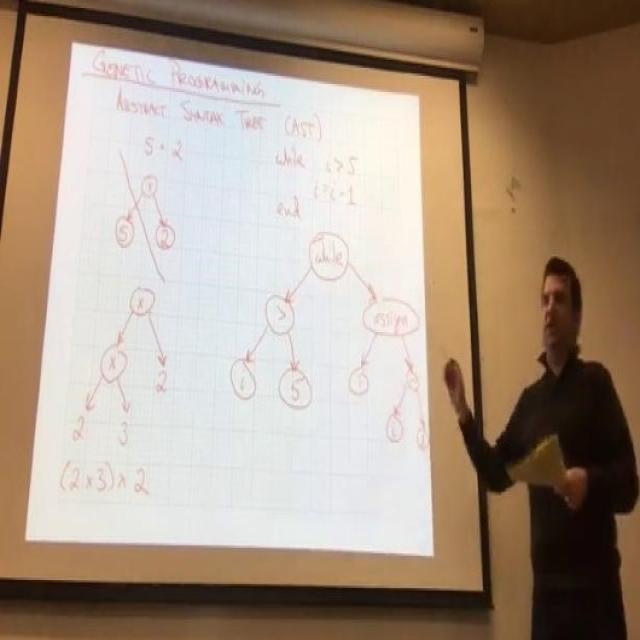 GENETIC PROGRAMMING
ABSTRACT SYNTAX TREE (AST)
5 + 2
while i > 5
i = i - 1
end
5 2
while
> assign
i 5 i
i
x
x 2
2 3
(2 x 3) x 2